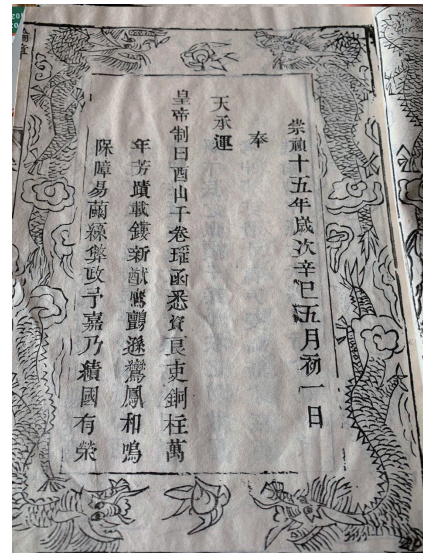 崇禎十五年歲次辛巳五月初一日
奉
天承運
皇帝制曰酉山千卷瑤函悉資良吏銅柱萬
年芳蹟載鏤新猷鸞鸝遜鸞鳳和鳴
保障易繭絲弊政予嘉乃積國有榮